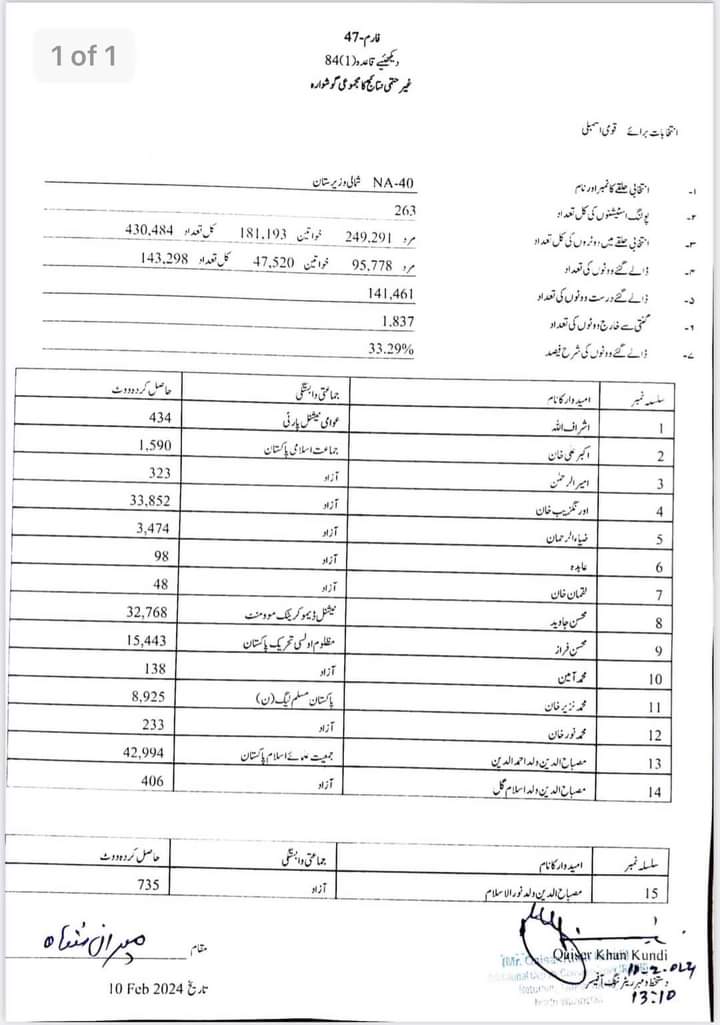 1 of 1
فارم-47
دیکھئیے قاعدہ(1)84
غیر حتمی نتائج کا مجموعی گوشوارہ
انتخابات برائے قومی اسمبلی
۱- انتخابی حلقے کا نمبر اور نام NA-40 شمالی وزیرستان
۲- پولنگ اسٹیشنوں کی کل تعداد 263
۳- انتخابی حلقے میں ووٹروں کی کل تعداد مرد 249,291 خواتین 181,193 کل تعداد 430,484
۴- ڈالے گئے ووٹوں کی تعداد مرد 95,778 خواتین 47,520 کل تعداد 143,298
۵- ڈالے گئے درست ووٹوں کی تعداد 141,461
۶- گنتی سے خارج ووٹوں کی تعداد 1,837
۷- ڈالے گئے ووٹوں کی شرح فیصد 33.29%
سلسلہ نمبر امیدوار کا نام جماعتی وابستگی حاصل کردہ ووٹ
1 اشراف اللہ عوامی نیشنل پارٹی 434
2 اکبر علی خان جماعت اسلامی پاکستان 1,590
3 امیر الرحمٰن آزاد 323
4 اورنگزیب خان آزاد 33,852
5 ضیاءالرحمان آزاد 3,474
6 عابدہ آزاد 98
7 لقمان خان آزاد 48
8 محسن جاوید نیشنل ڈیموکریٹک موومنٹ 32,768
9 محسن فراز مظلوم اولسی تحریک پاکستان 15,443
10 محمد آمین آزاد 138
11 محمد نزیر خان پاکستان مسلم لیگ (ن) 8,925
12 محمد نور خان آزاد 233
13 مصباح الدین ولد احمد الدین جمعیت علمائے اسلام پاکستان 42,994
14 مصباح الدین ولد اسلام گل آزاد 406
سلسلہ نمبر امیدوار کا نام جماعتی وابستگی حاصل کردہ ووٹ
15 مصباح الدین ولد نور الاسلام آزاد 735
مقام میران شاہ
Quiser Khan Kundi
دستخط و مہر ریٹرننگ آفیسر
10-2-024
13:10
تاریخ 10 Feb 2024